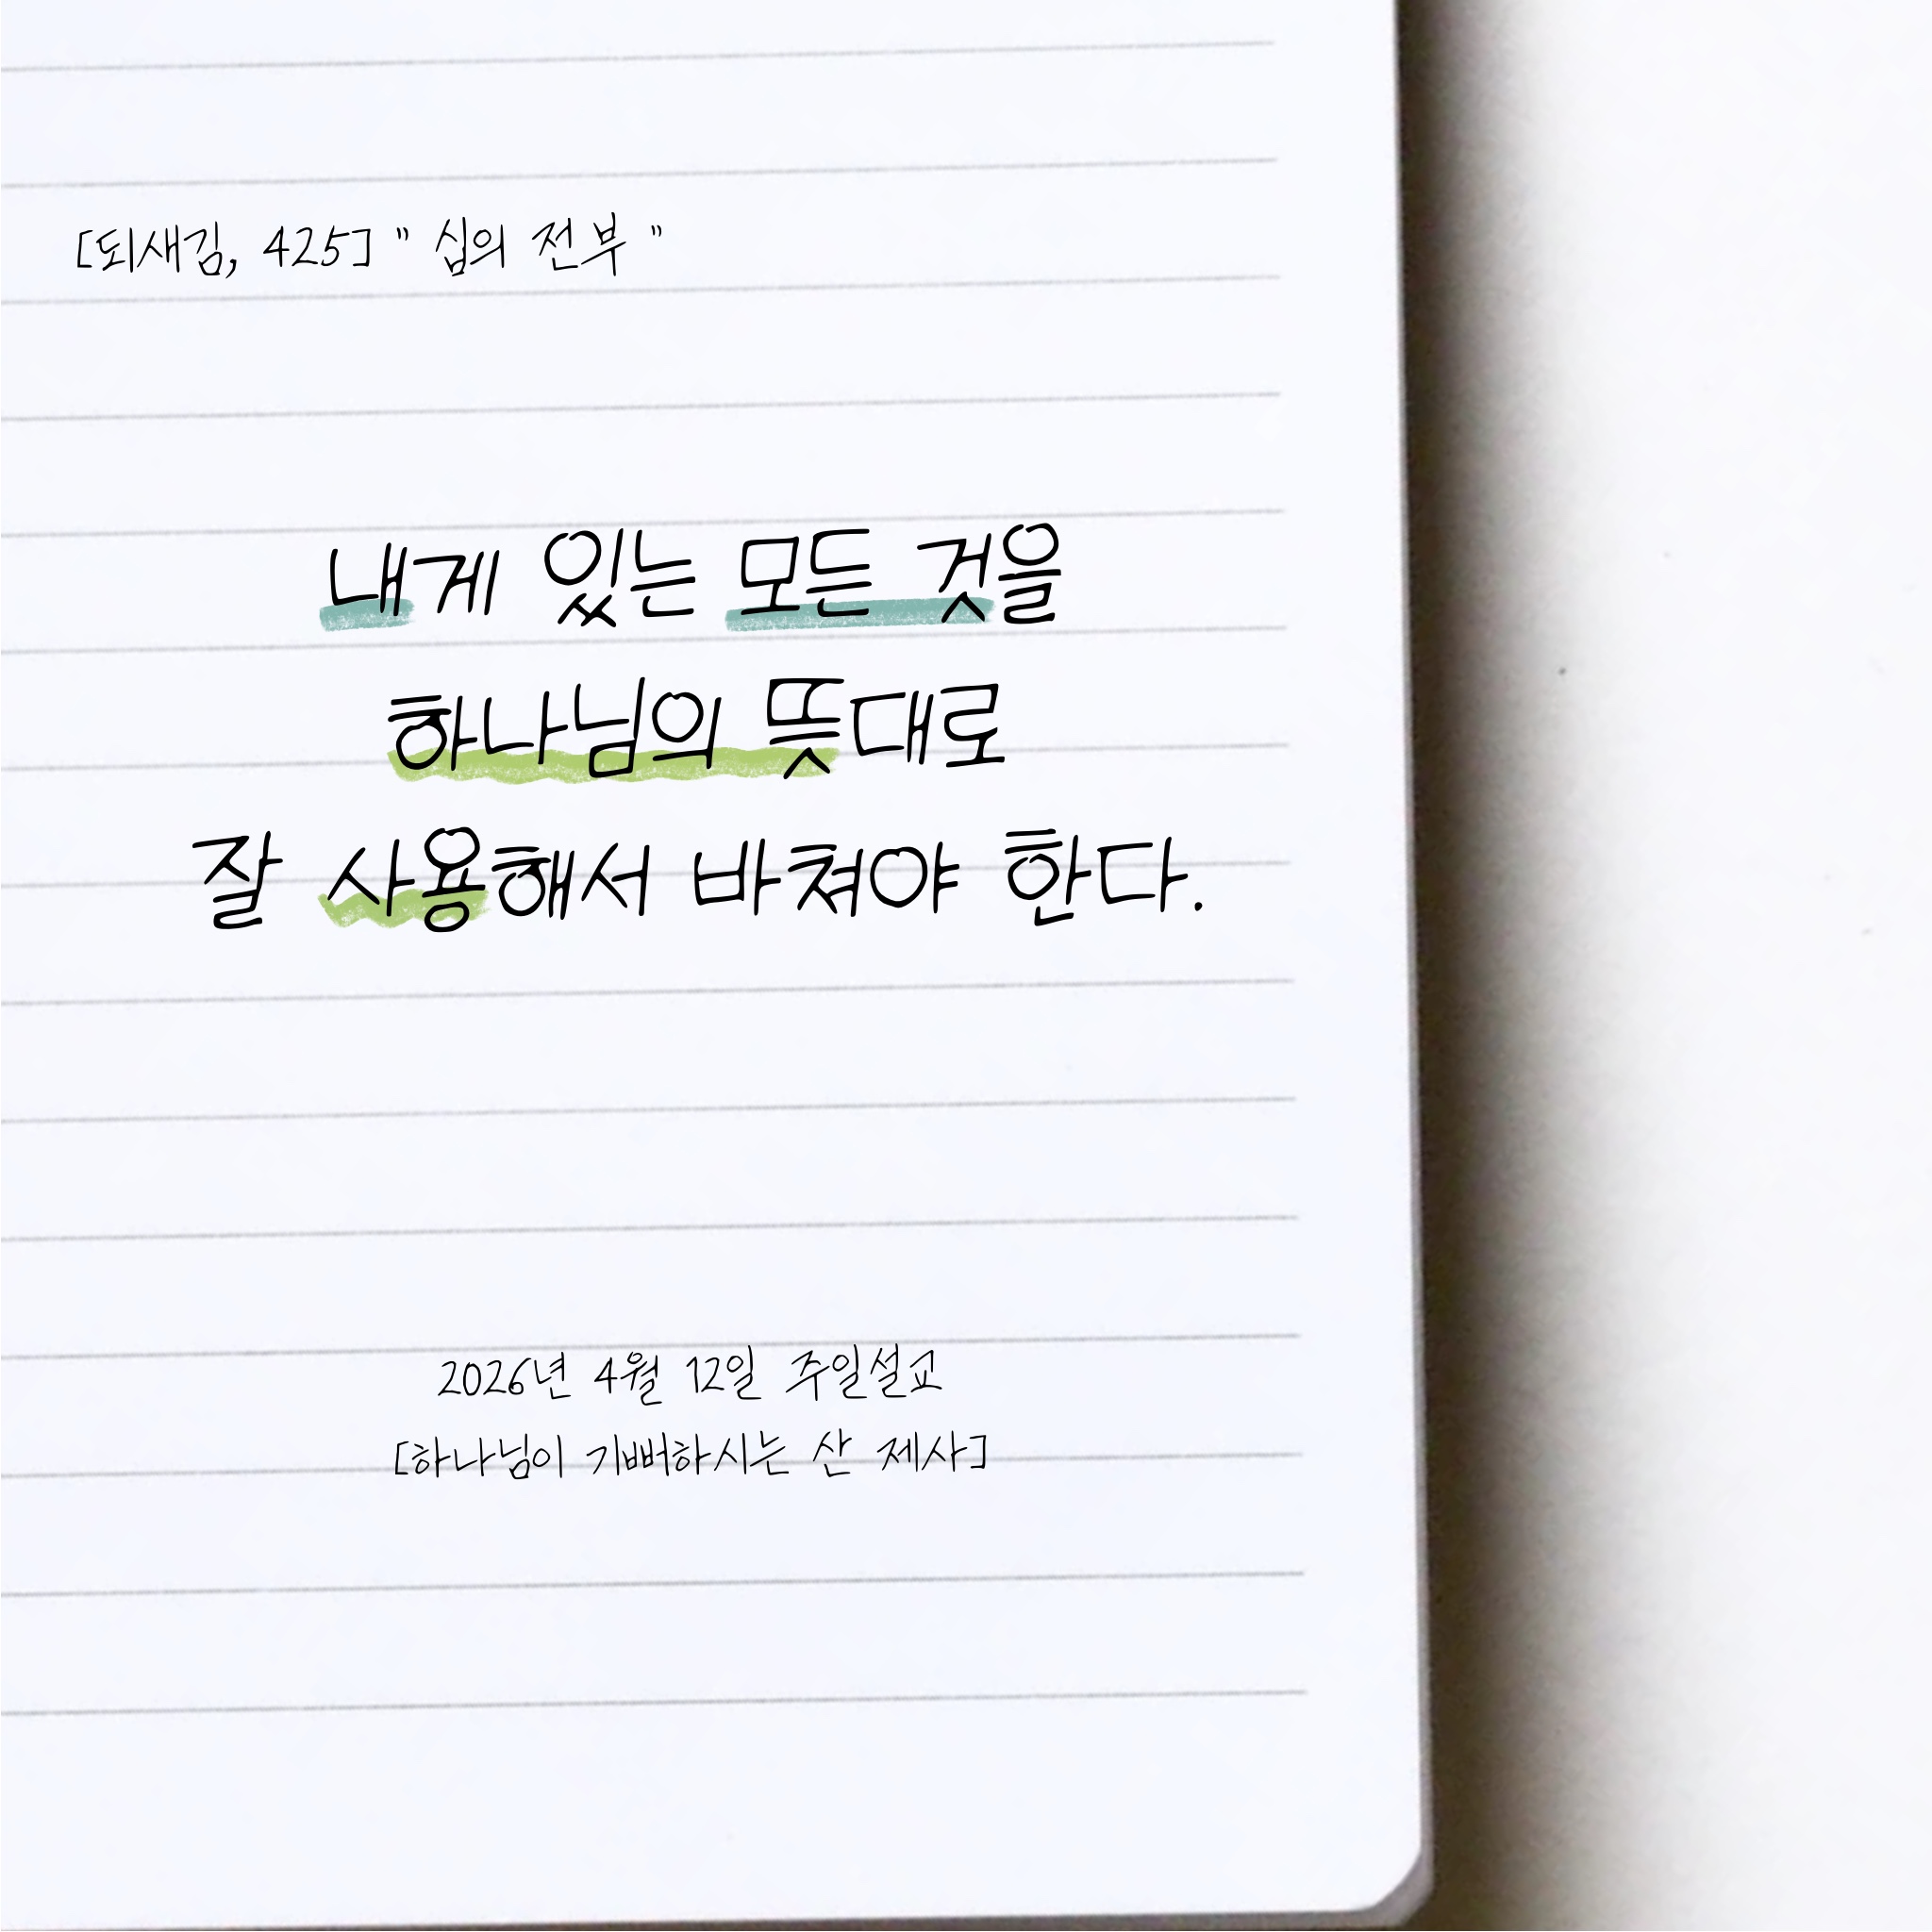 [되새김, 425] " 십의 전부 "
내게 있는 모든 것을
하나님의 뜻대로
잘 사용해서 바쳐야 한다.
2026년 4월 12일 주일설교
[하나님이 기뻐하시는 산 제사]